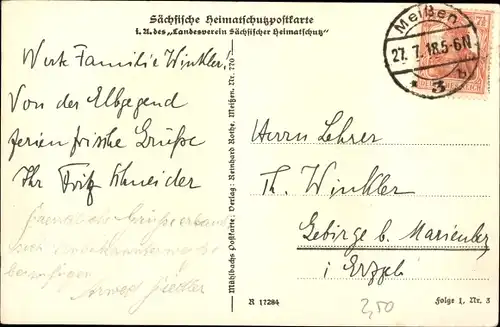 Sächsische Heimatschutzpostkarte
i. A. des „Landesverein Sächsischer Heimatschutz“
Meißen
27. 7. 18. 5-6N
* 3 b
7½
Werte Familie Winkler.
Von der Elbgegend
ferienfrische Grüße
Ihr Fritz Schneider
Mühlbachs Postkarte; Verlag: Reinhard Rothe, Meißen. Nr. 770
Herrn Lehrer
Th. Winkler
Gebirge b. Marienbg
i Erzgeb
R 17284
2,50
Folge 1, Nr. 3